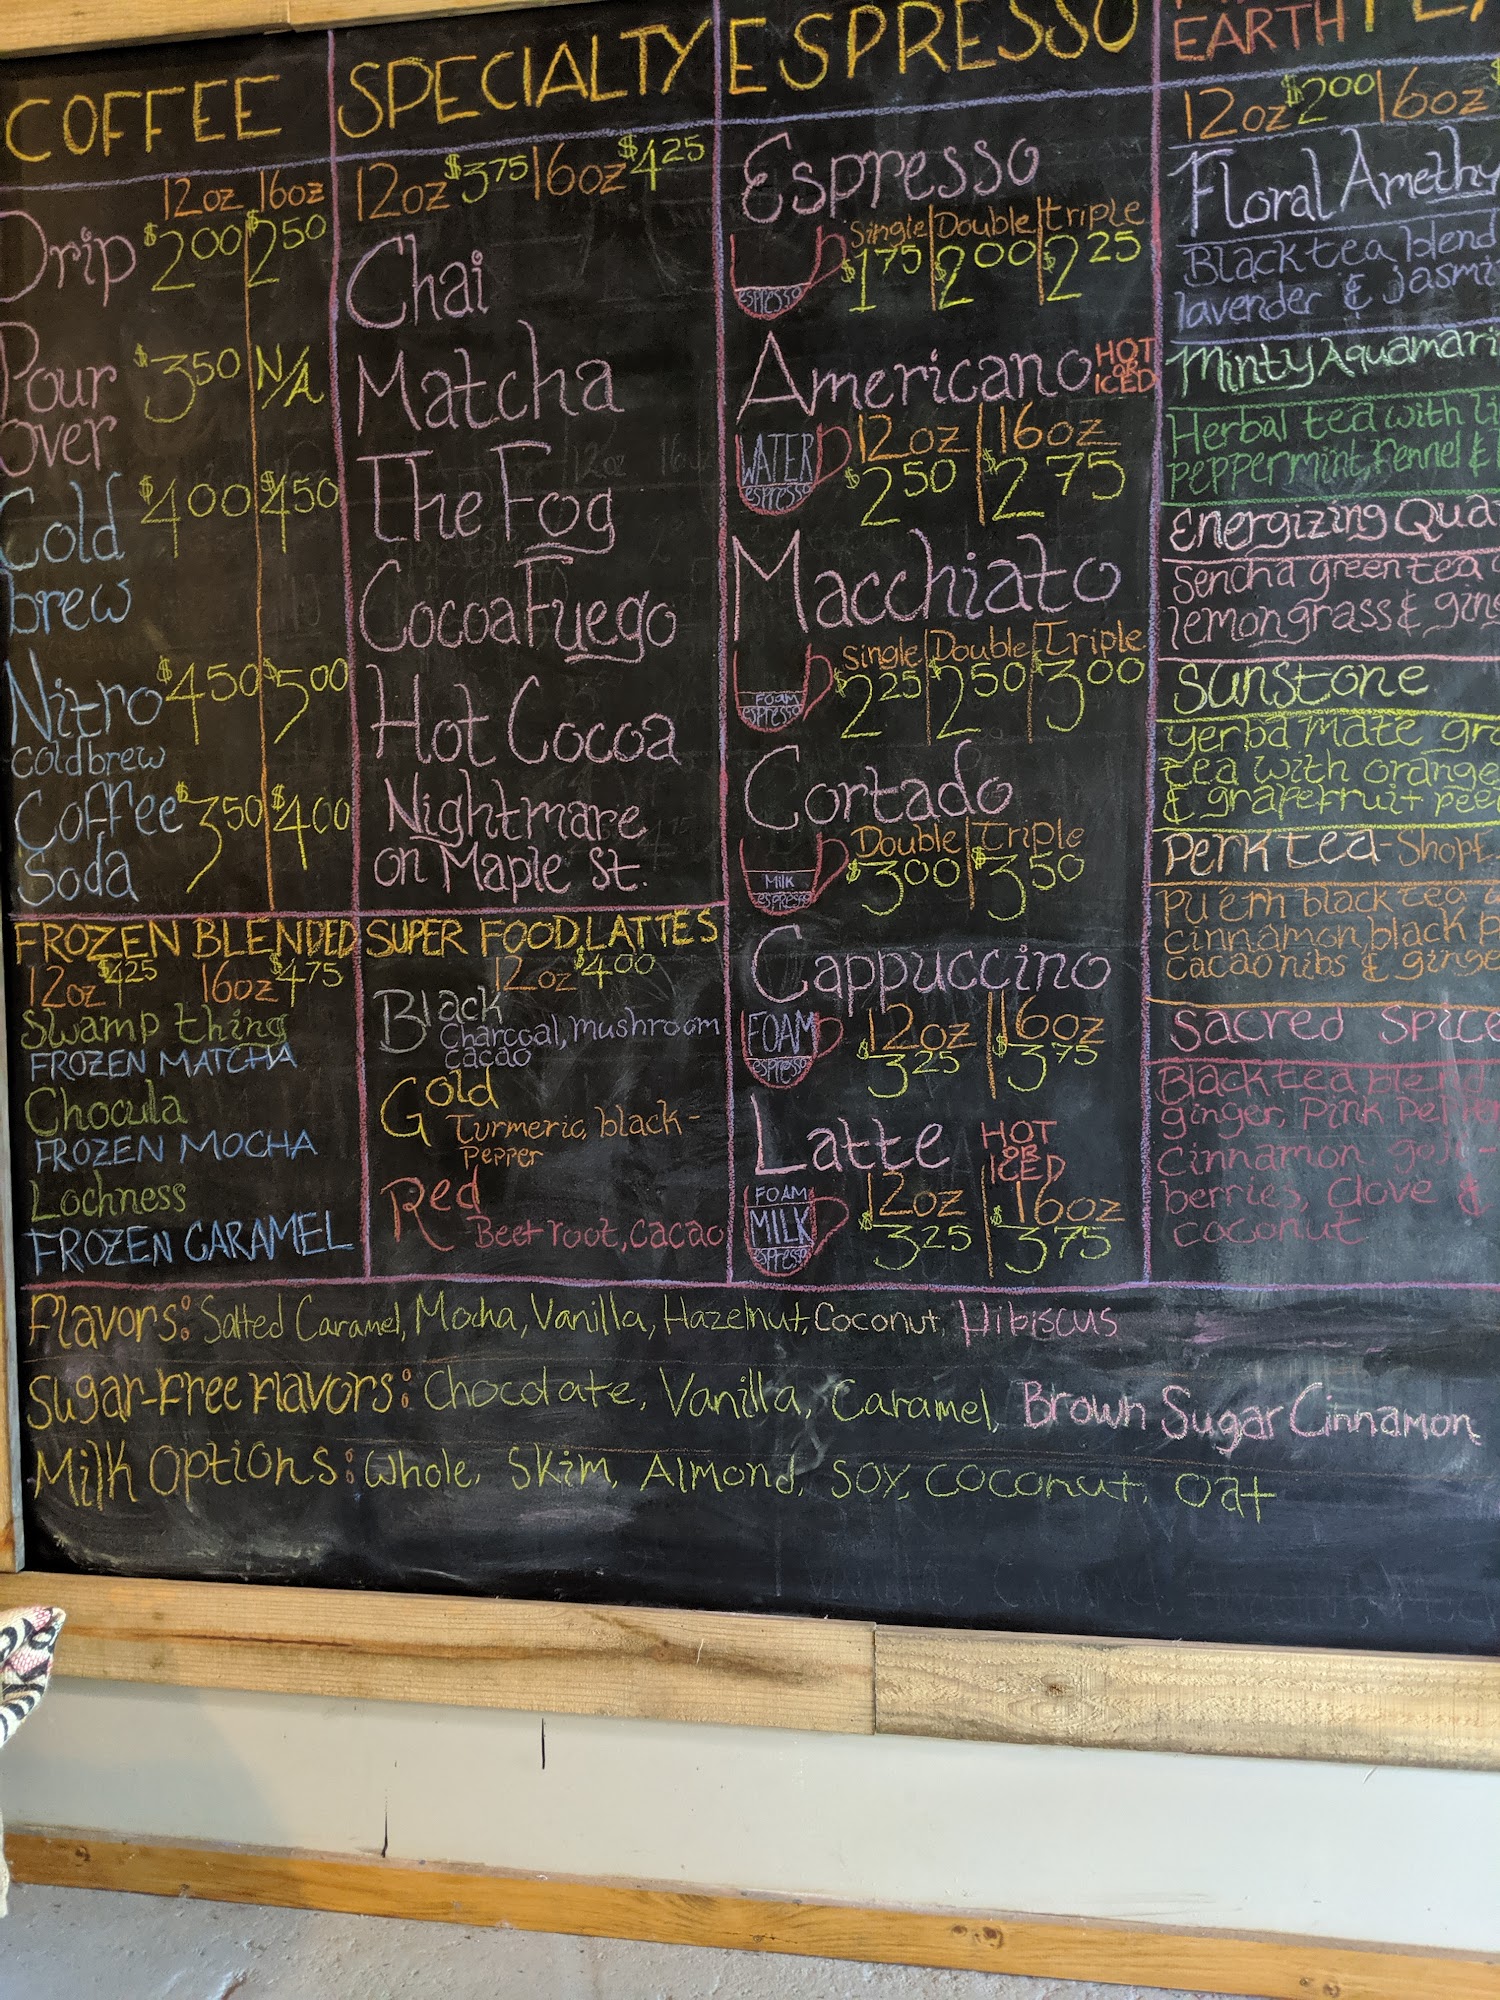 COFFEE
12oz 16oz
Drip $2.00 $2.50
Pour $3.50 N/A
over
Cold $4.00 $4.50
brew
Nitro $4.50 $5.00
coldbrew
Coffee $3.50 $4.00
Soda
FROZEN BLENDED
12oz $4.25 16oz $4.75
Swamp thing
FROZEN MATCHA
Chocula
FROZEN MOCHA
Lochness
FROZEN CARAMEL
SPECIALTY
12oz $3.75 16oz $4.25
Chai
Matcha
The Fog
Cocoa Fuego
Hot Cocoa
Nightmare
on Maple St.
SUPER FOOD LATTES
12oz $4.00
Black
Charcoal, mushroom
cacao
Gold
Turmeric, black-
pepper
Red
Beet root, cacao
ESPRESSO
Espresso
Single Double triple
$1.75 $2.00 $2.25
espresso
Americano HOT
OR
ICED
12oz 16oz
$2.50 $2.75
WATER
espresso
Macchiato
Single Double Triple
$2.25 $2.50 $3.00
FOAM
espresso
Cortado
Double Triple
$3.00 $3.50
Milk
espresso
Cappuccino
12oz 16oz
$3.25 $3.75
FOAM
espresso
Latte HOT
OR
ICED
12oz 16oz
$3.25 $3.75
FOAM
MILK
espresso
EARTH
12oz $2.00 16oz
Floral Amethy
Black tea blend
lavender & jasmi
Minty Aquamari
Herbal tea with li
peppermint, Fennel &
Energizing Qua
Sencha green tea
lemongrass & gin
Sunstone
Yerba Mate gr
tea with orange
& grapefruit pee
Perk tea-Shop
Pu erh black tea
cinnamon, black p
cacao nibs & ginge
Sacred Spice
Black tea blend
ginger, Pink Pepper
cinnamon, goji-
berries, clove &
coconut
Flavors: Salted Caramel, Mocha, Vanilla, Hazelnut, Coconut, Hibiscus
Sugar-Free Flavors: Chocolate, Vanilla, Caramel, Brown Sugar Cinnamon
Milk Options: Whole, Skim, Almond, Soy, Coconut, Oat